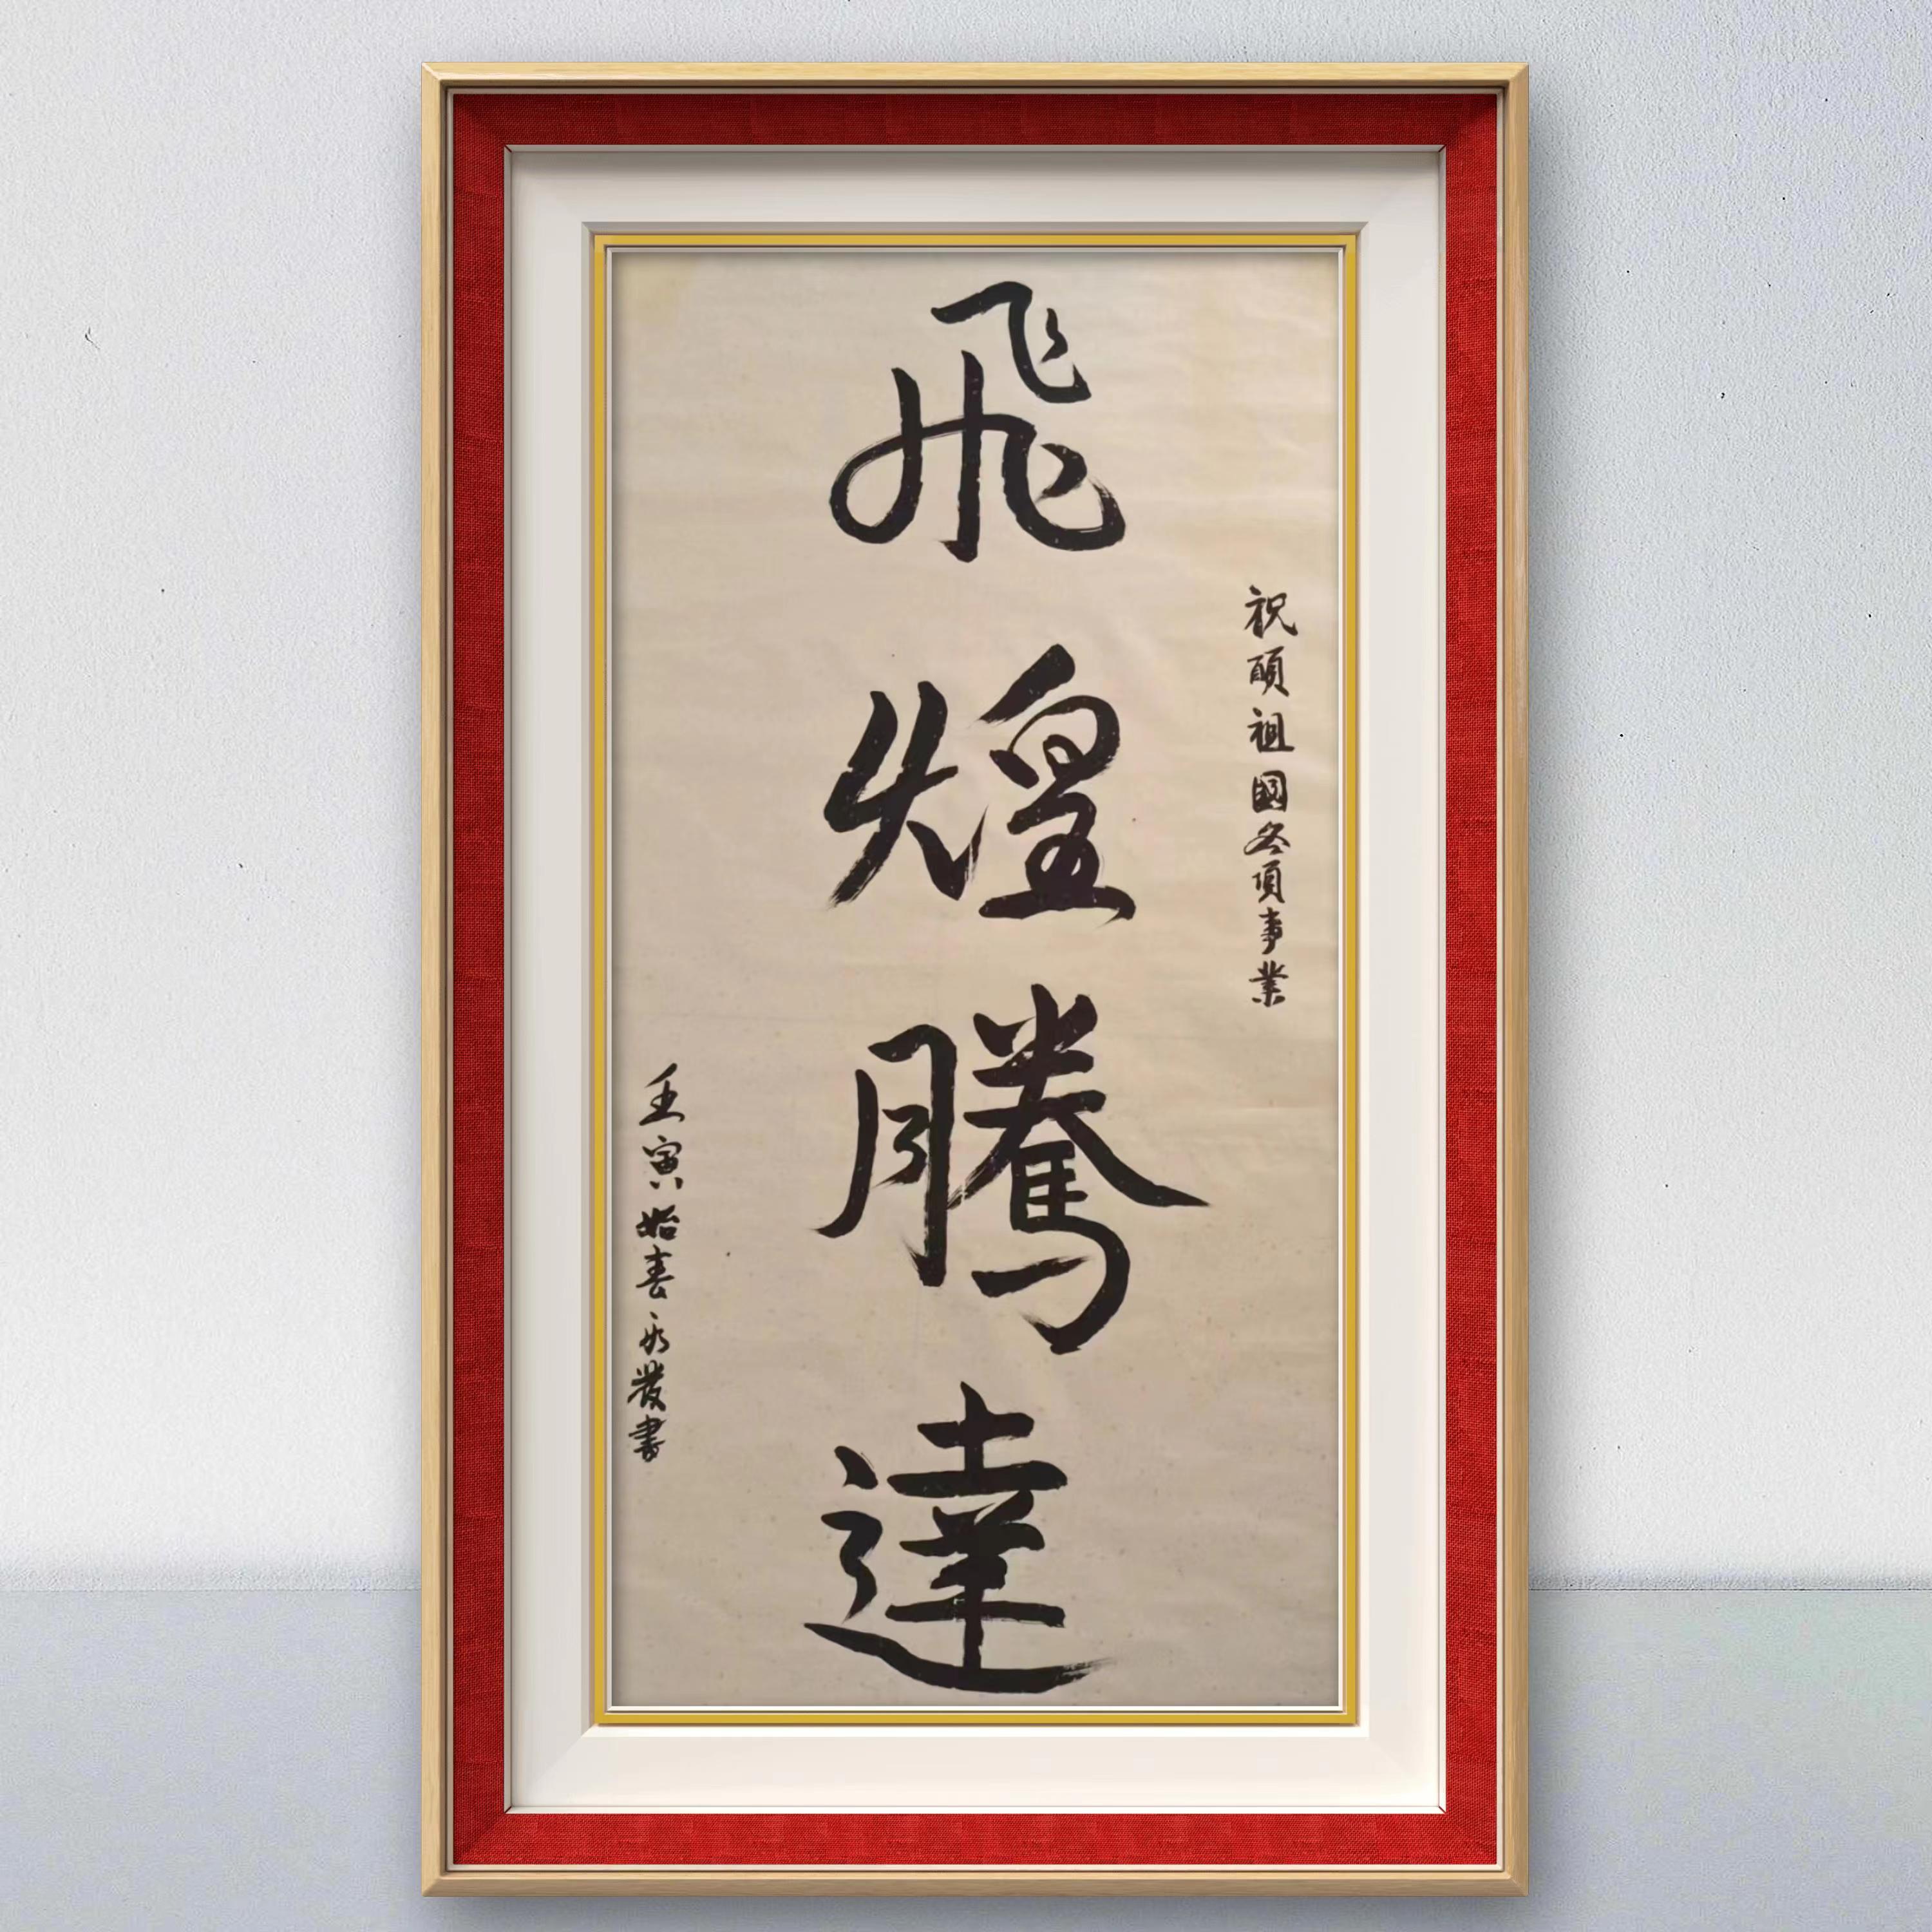 祝願祖國各項事業
飛煌騰達
壬寅始春永發書